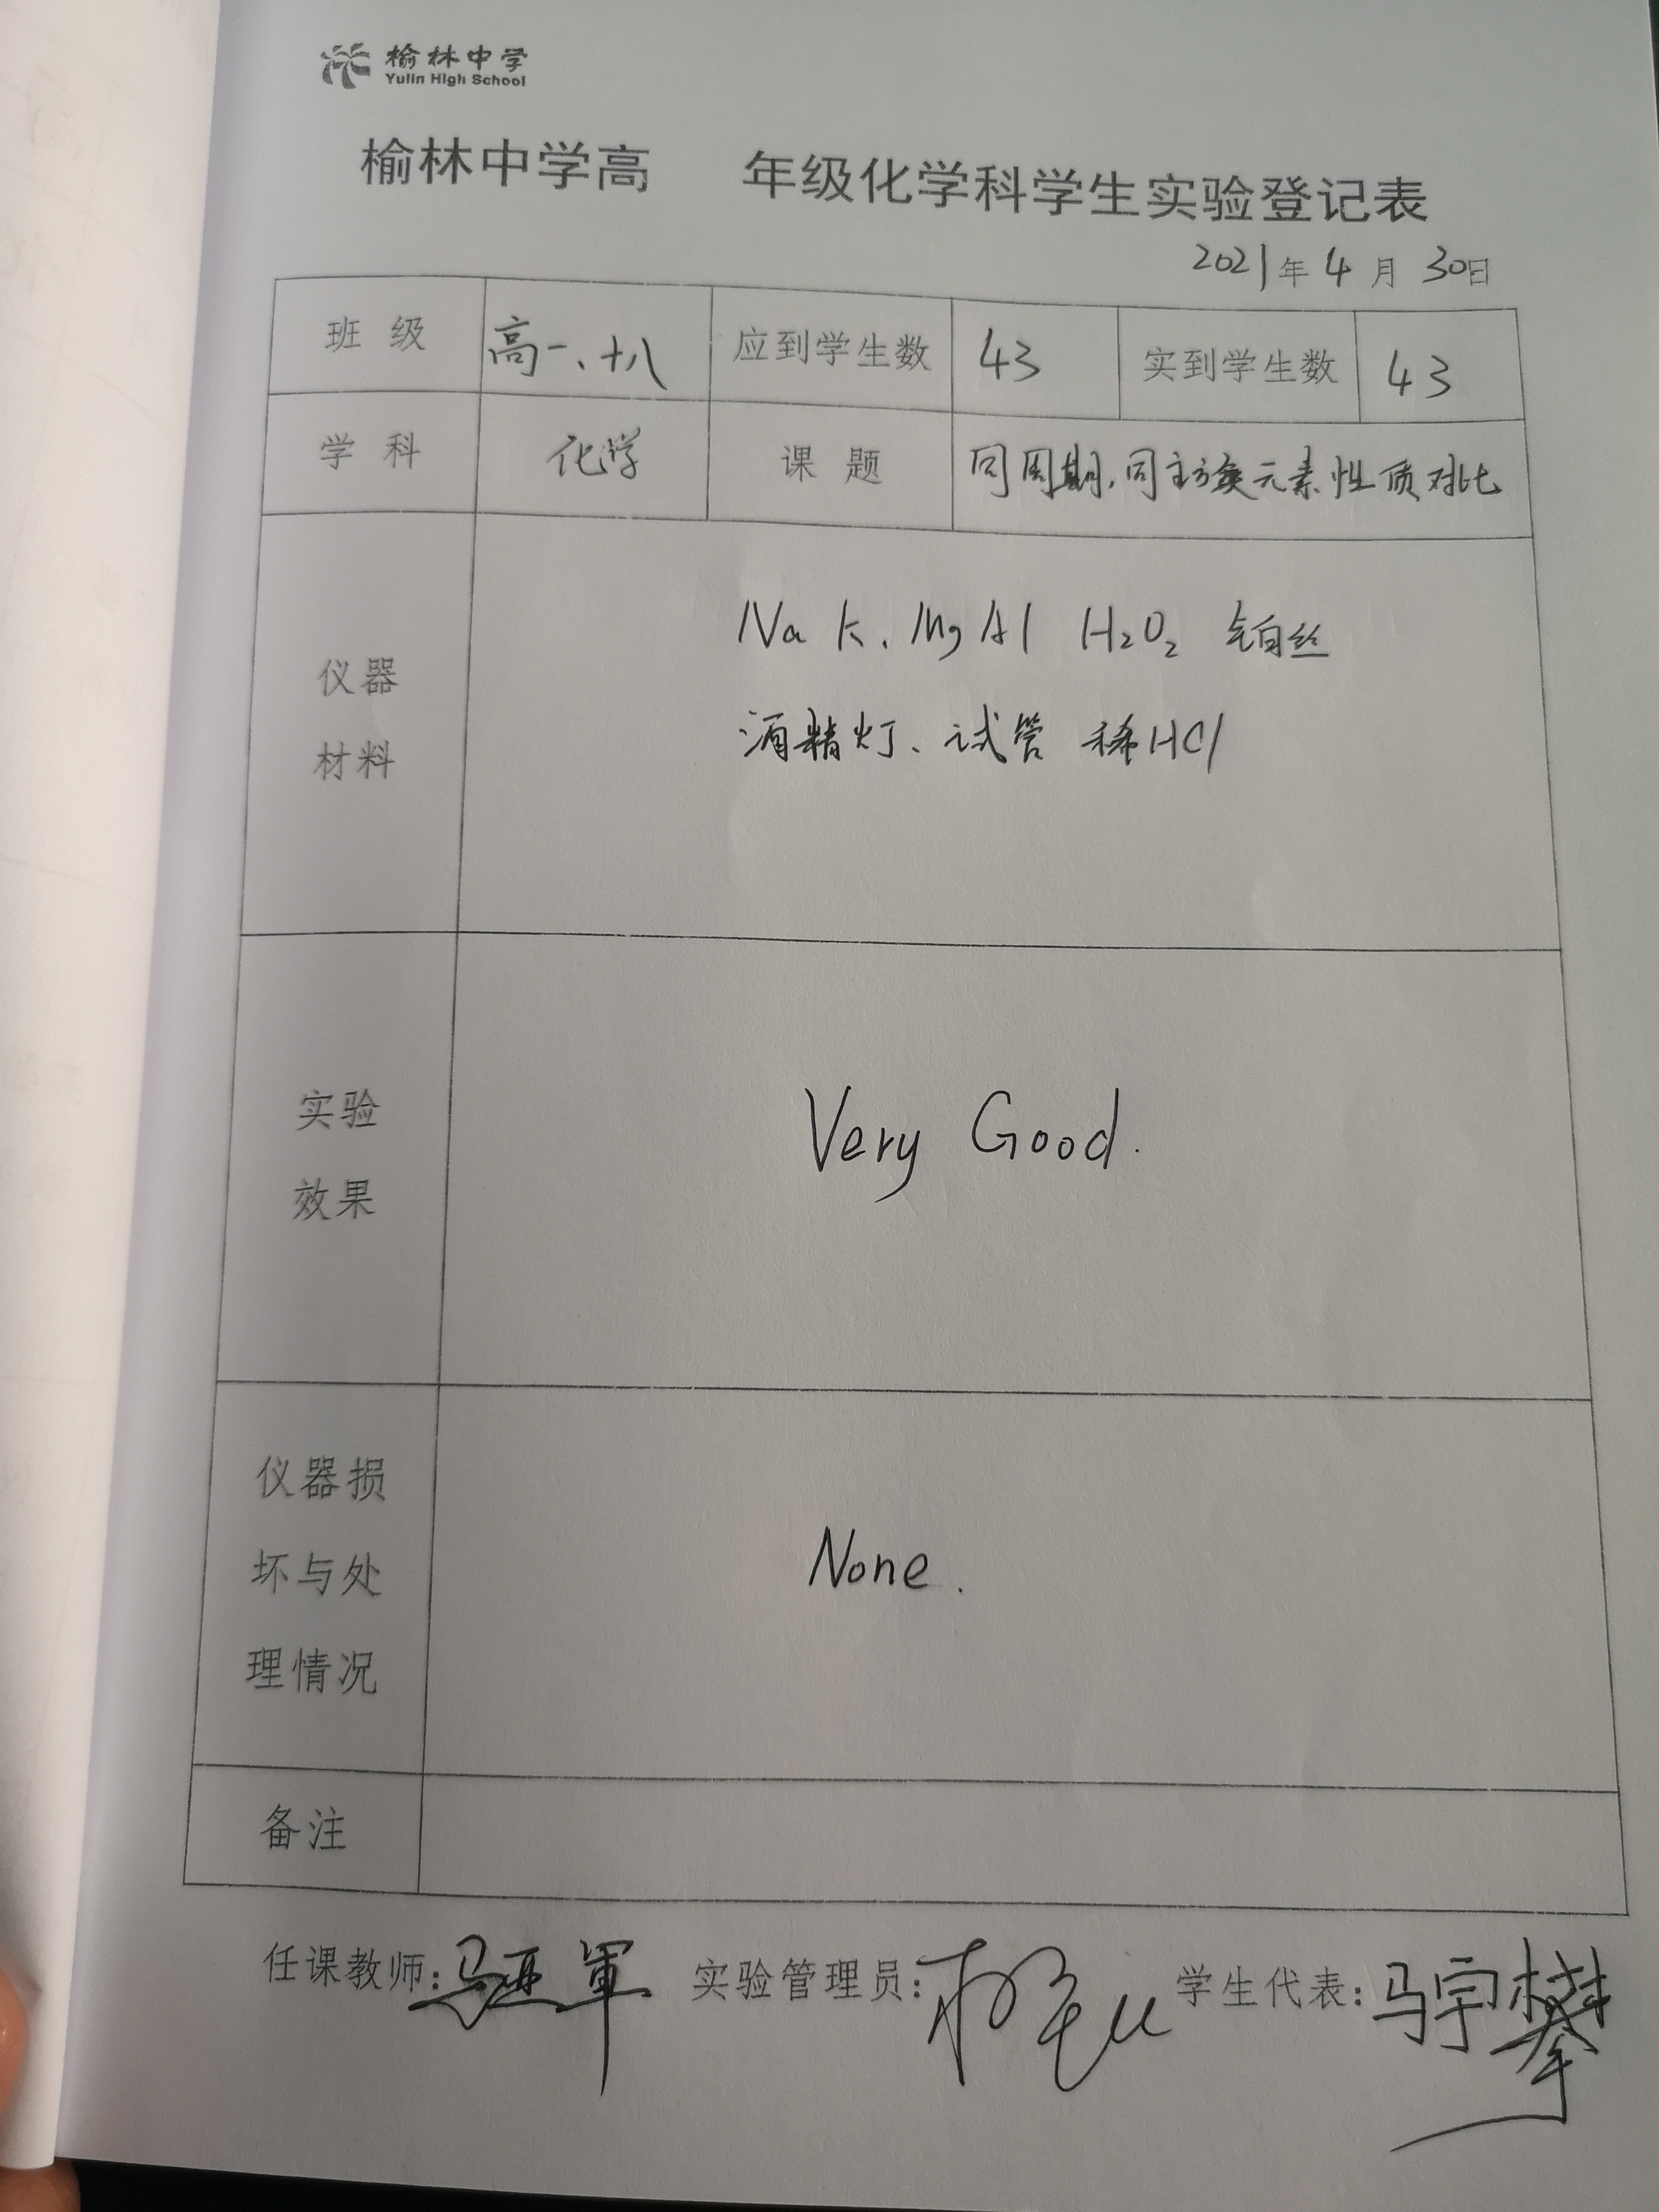 榆林中学
Yulin High School
榆林中学高 年级化学科学生实验登记表
2021年4月30日
班级 高一、十八 应到学生数 43 实到学生数 43
学科 化学 课题 同周期、同主族元素性质对比
仪器
材料
Na K、Mg Al H₂O₂ 铂丝
酒精灯、试管 稀HCl
实验
效果
Very Good.
仪器损
坏与处
理情况
None.
备注
任课教师:马亚軍 实验管理员: 学生代表:马宇攀